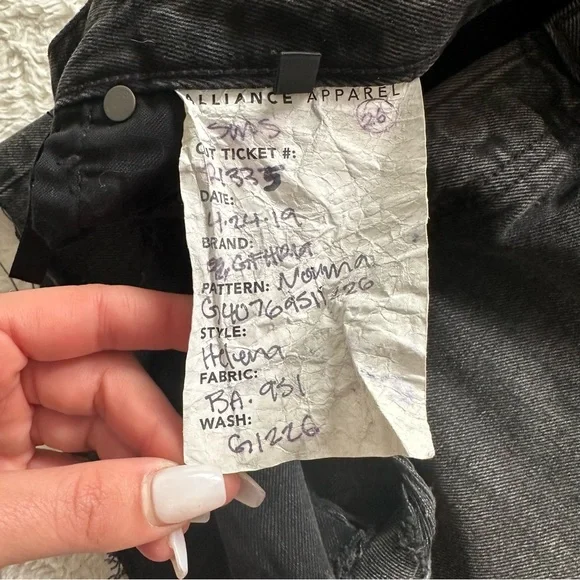 ALLIANCE APPAREL
SMPS 26
CUT TICKET #:
R1335
DATE:
4.24.19
BRAND:
PATTERN: Norma
G40769511226
STYLE:
Helena
FABRIC:
BA.951
WASH:
G1226